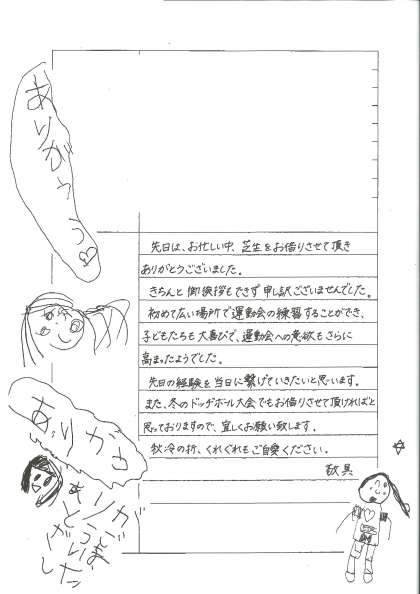 ありがとう
先日は、お忙しい中、芝生をお借りさせて頂き
ありがとうございました。
きちんと御挨拶もできず申し訳ございませんでした。
初めて広い場所で運動会の練習することができ、
子どもたちも大喜びで、運動会への意欲もさらに
高まったようでした。
先日の経験を当日に繋げていきたいと思います。
また、冬のドッチボール大会でもお借りさせて頂ければと
思っておりますので、宜しくお願い致します。
秋冷の折、くれぐれもご自愛ください。
敬具
ありがとう